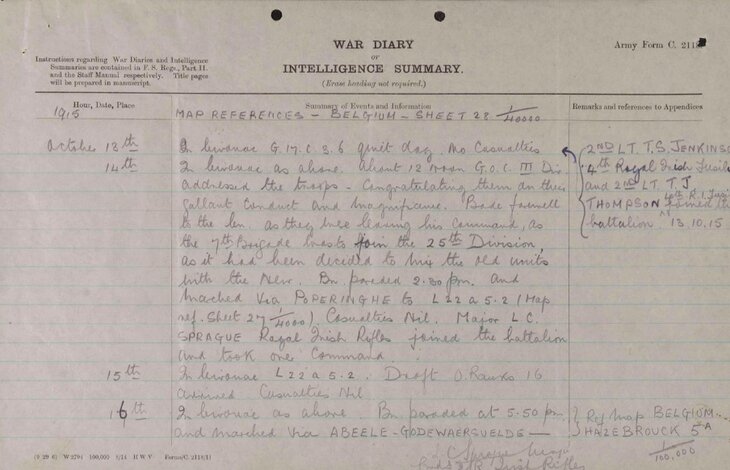 WAR DIARY
or
INTELLIGENCE SUMMARY.
(Erase heading not required.)
Army Form C. 2118
Instructions regarding War Diaries and Intelligence
Summaries are contained in F. S. Regs., Part II.
and the Staff Manual respectively. Title pages
will be prepared in manuscript.
Hour, Date, Place
Summary of Events and Information
Remarks and references to Appendices
1915
MAP REFERENCES - BELGIUM - SHEET 28 1/40000
October 13th
In bivouac G.17.C.3.6 quiet day. No Casualties
14th
In bivouac as above. About 12 noon G.O.C. III Div
addressed the troops - Congratulating them on their
gallant conduct and magnificence. Bade farewell
to the bn. as they were leaving his command, as
the 7th Brigade was to join the 25th Division,
as it had been decided to mix the old units
with the New. Bn. paraded 2.30 pm. and
marched via POPERINGHE to L 22 a 5.2 (Map
ref. Sheet 27 1/4000). Casualties Nil. Major L.C.
SPRAGUE Royal Irish Rifles joined the battalion
and took over Command.
15th
In bivouac L 22 a 5.2. Draft O. Ranks 16
arrived Casualties Nil
16th
In bivouac as above. Bn paraded at 5.50 pm
and marched via ABEELE-GODEWAERSVELDE-
2ND LT. T.S. JENKINS
4th Royal Irish Fusil
and 2ND LT. T.J
THOMPSON R.I. Fusi
joined the
battalion. 13.10.15
Ref Map BELGIUM -
HAZEBROUCK 5A
1/100,000
(9 29 6) W 2794 100,000 8/14 H W V Forms/C. 2118/11
Major
Irish Rifles